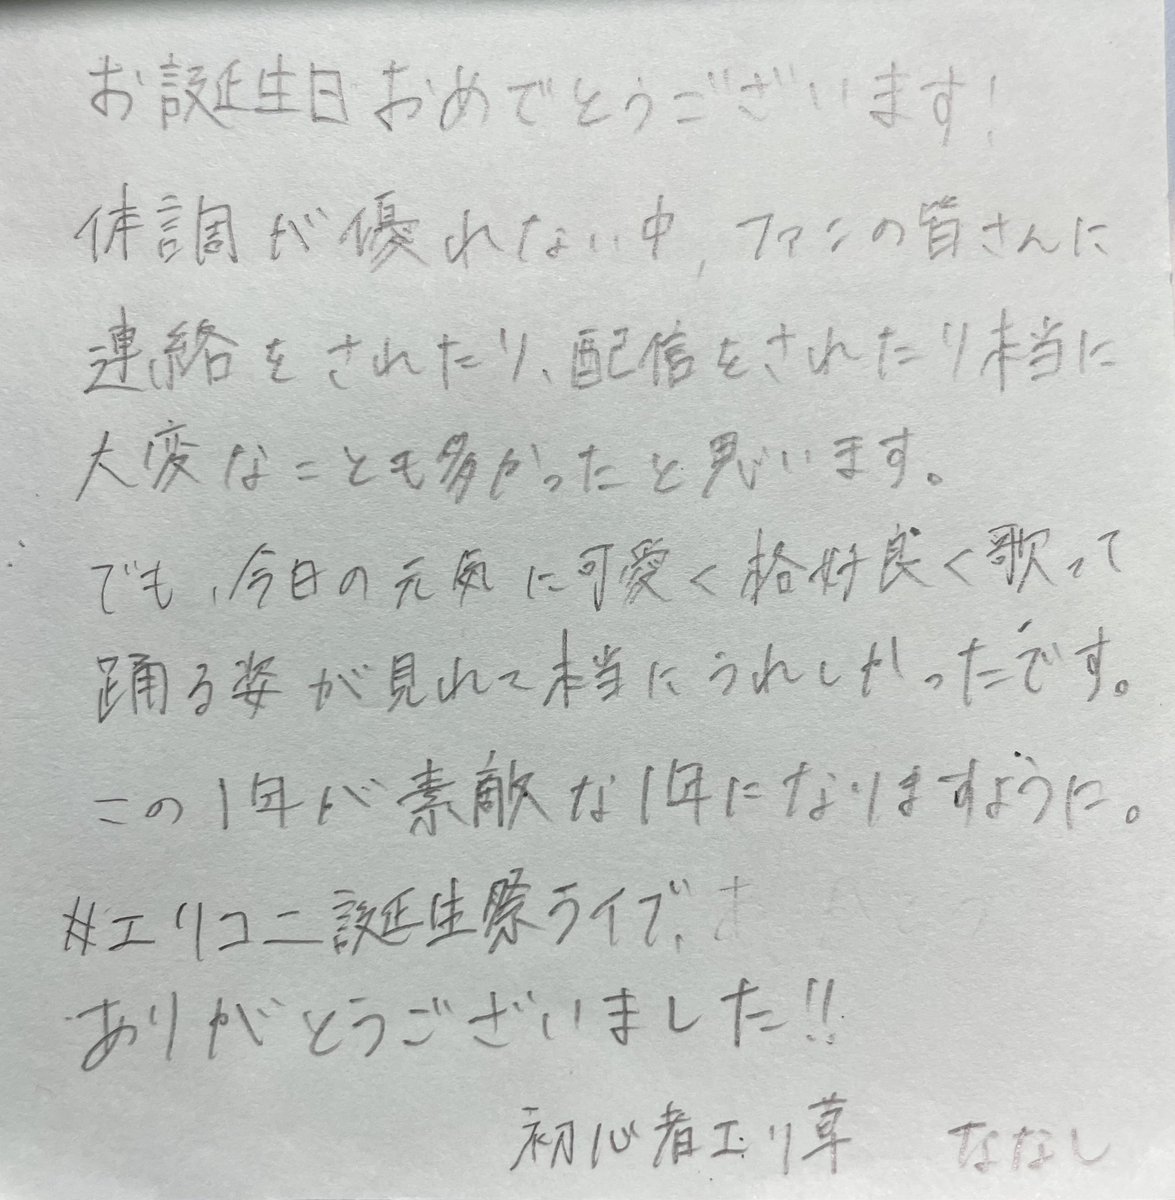 お誕生日おめでとうございます!
体調が優れない中,ファンの皆さんに
連絡をされたり、配信をされたり本当に
大変なことも多かったと思います。
でも、今日の元気に可愛く格好良く歌って
踊る姿が見れて本当にうれしかったです。
この1年が素敵な1年になりますように。
#エリコニ誕生祭ライブ、
ありがとうございました!!
初心者エリ草 ななし